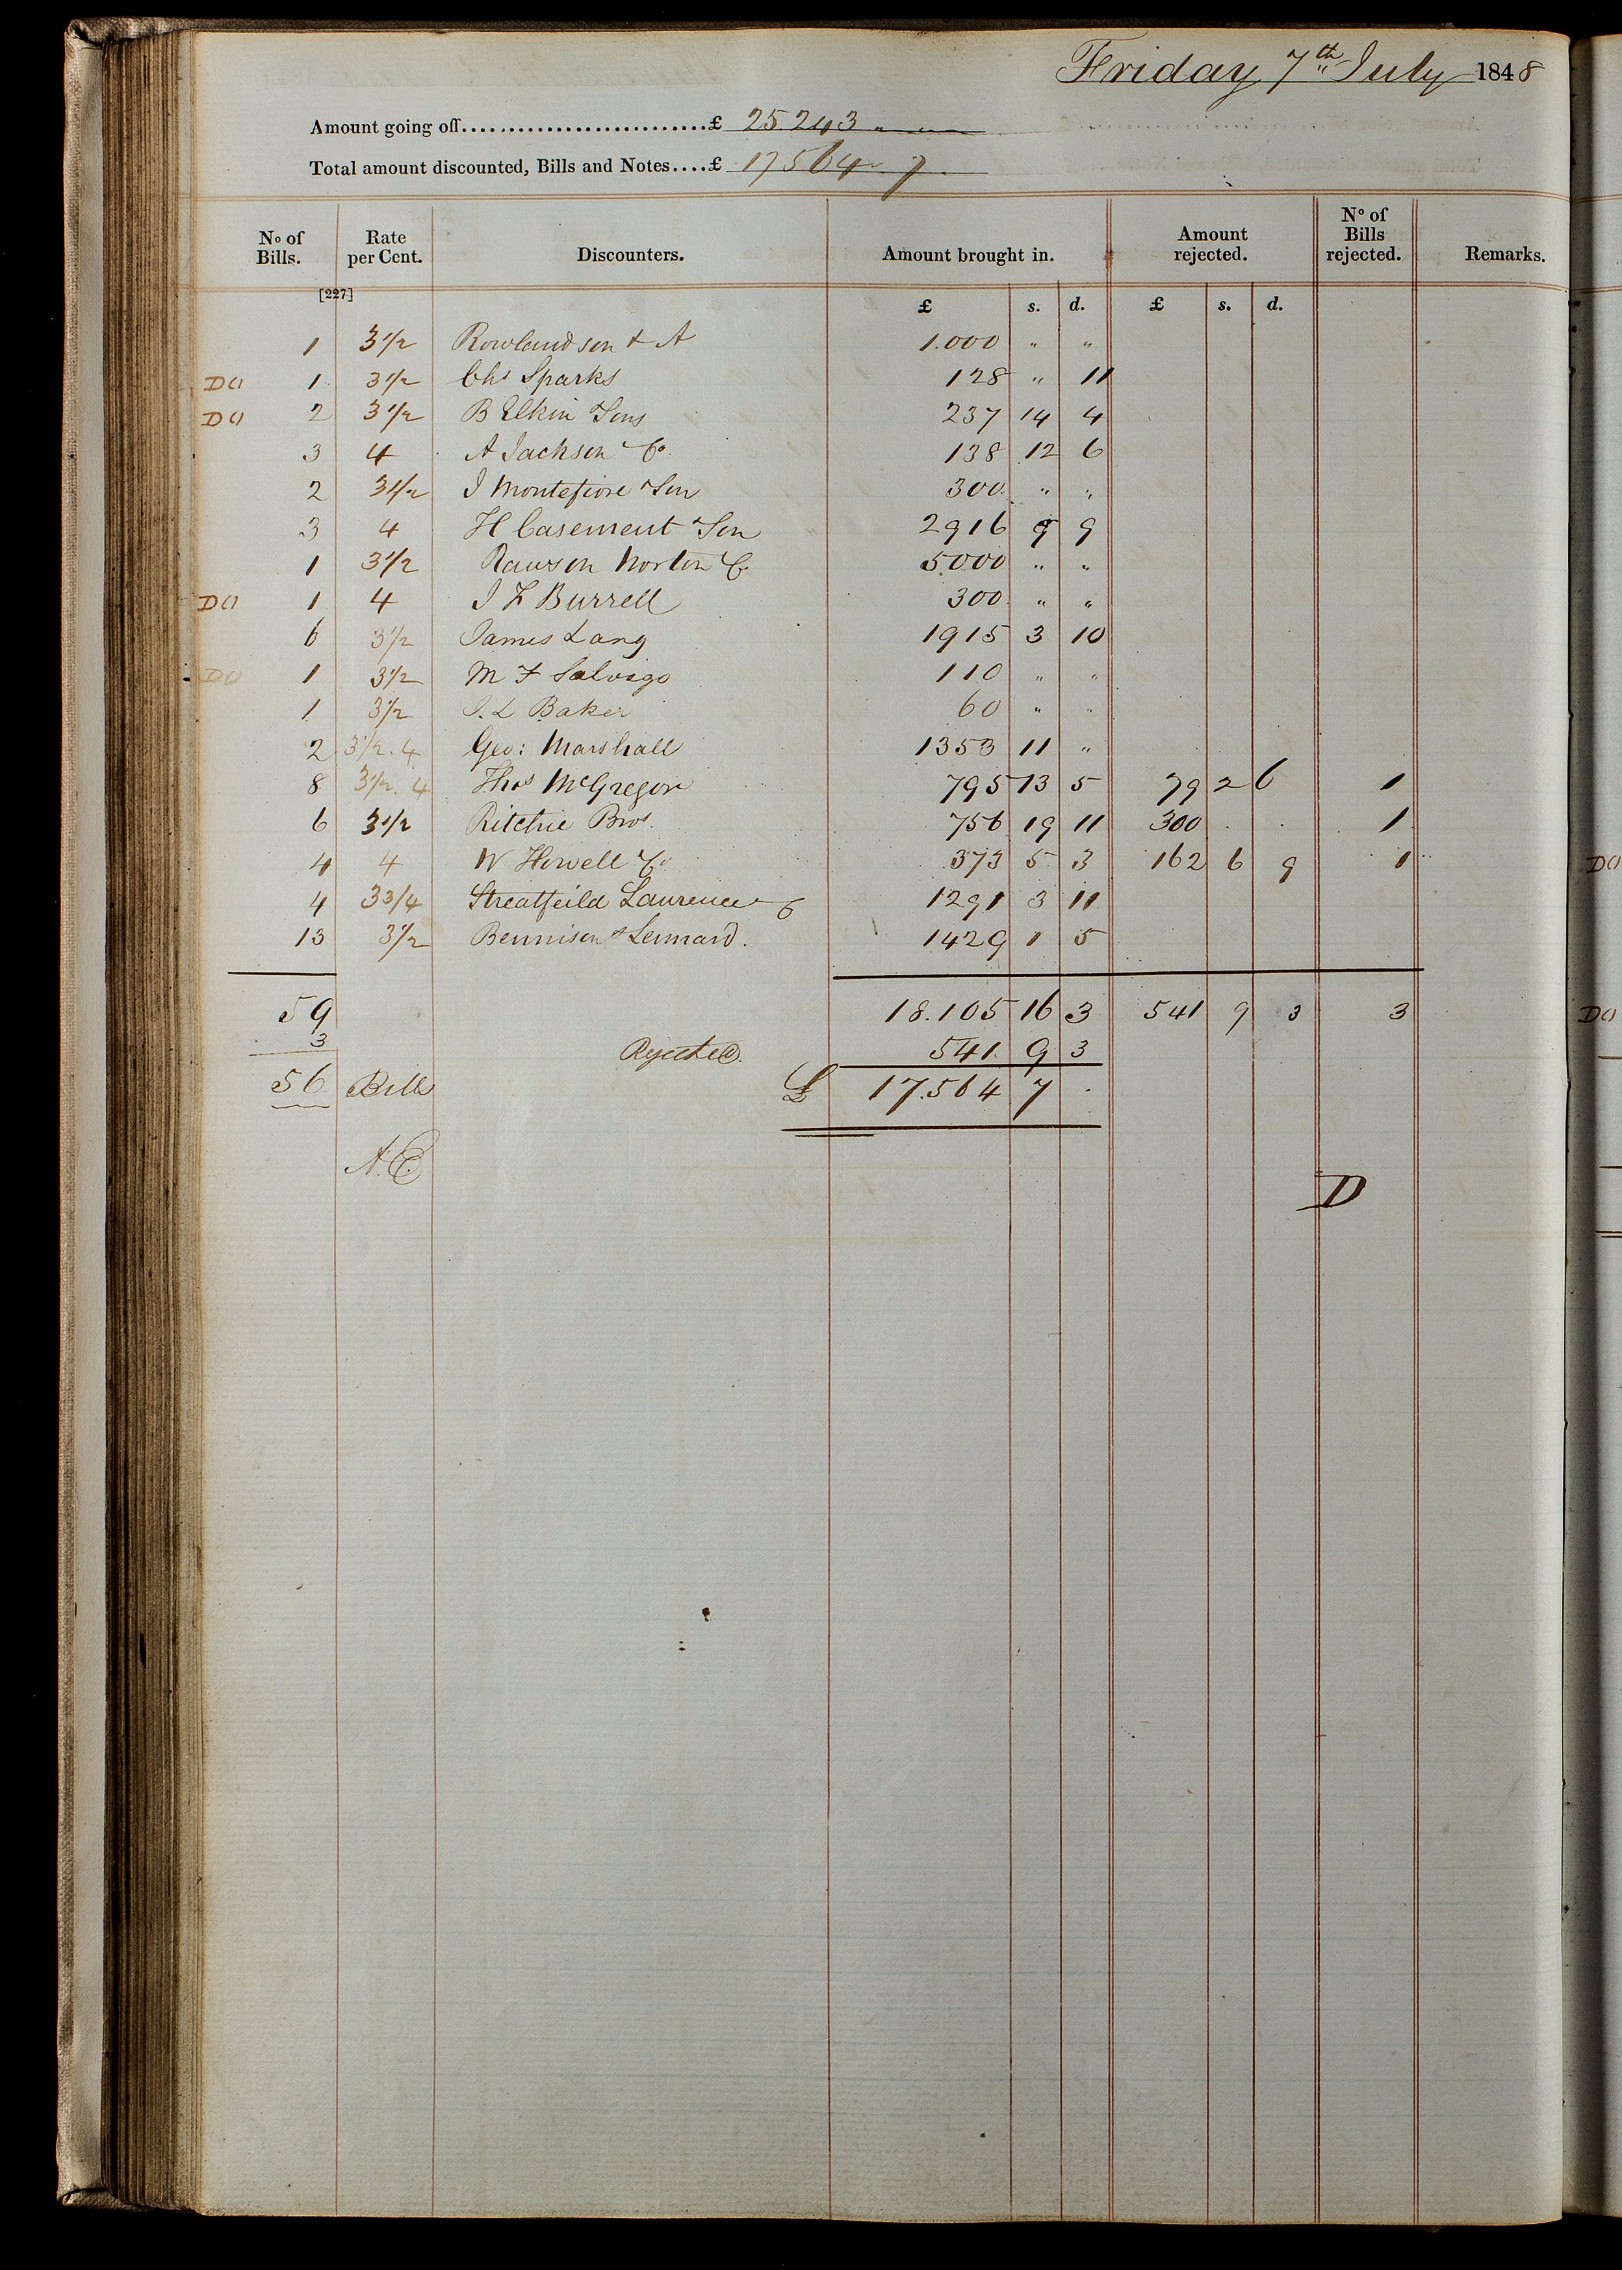 Friday 7th July 1848
Amount going off..........................£ 25.243 " "
Total amount discounted, Bills and Notes....£ 17564 7
No of Bills. Rate per Cent. Discounters. Amount brought in. Amount rejected. No of Bills rejected. Remarks.
[227]
£ s. d. £ s. d.
1 3 1/2 Rowlandson & A 1.000 " "
DO 1 3 1/2 Chs Sparks 128 " 11
DO 2 3 1/2 B Elkin & Sons 237 14 4
3 4 A Jackson & Co. 138 12 6
2 3 1/2 J Montefiore & Son 300 " "
3 4 H Casement & Son 2916 9 9
1 3 1/2 Rawson Norton & Co 5000 " "
DO 1 4 J F Burrell 300 " "
6 3 1/2 James Lang 1915 3 10
DO 1 3 1/2 M F Salvago 110 " "
1 3 1/2 J. L Baker 60 " "
2 3 1/2. 4 Geo: Marshall 1353 11 "
8 3 1/2. 4 Thos McGregor 795 13 5 79 2 6 1
6 3 1/2 Ritchie Bros. 756 19 11 300 . . 1
4 4 W Howell & Co 373 5 3 162 6 9 1
4 3 3/4 Streatfeild Laurence & Co 1291 3 11
13 3 1/2 Bennison & Lennard. 1429 1 5
59 18.105 16 3 541 9 3 3
3 Rejected. 541. 9 3
56 Bills £ 17.564 7 .
A.C.
D
DO
DO